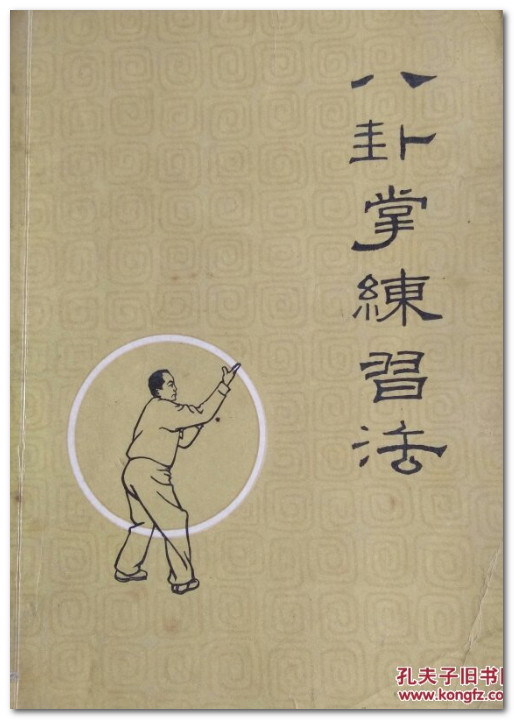 八卦掌練習法
孔夫子旧书
www.kongfz.c